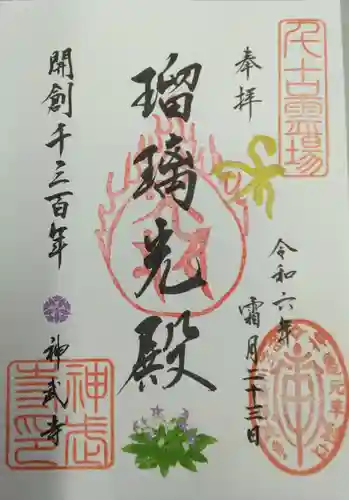 奉拝
千古霊場
令和六年
霜月二十三日
瑠璃光殿
開創千三百年
神武寺
神武
寺印